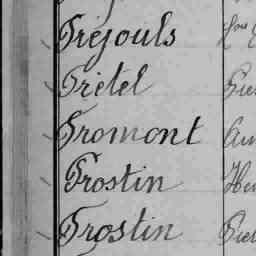 Fréjouls
Frétel
Fromont
Frostin
Frostin